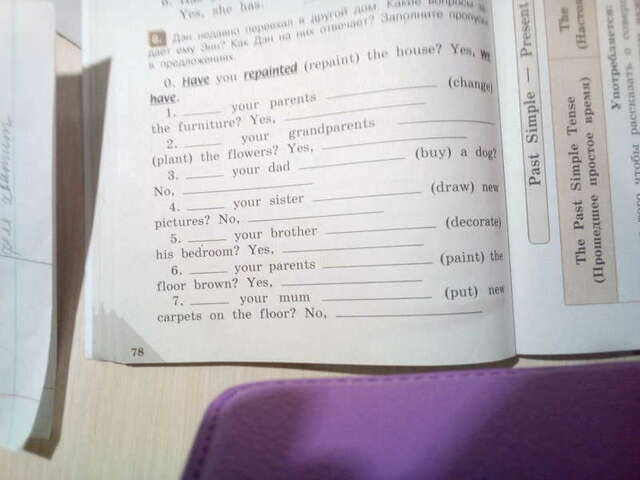 Yes, she has.
8. Дэн недавно переехал в другой дом. Какие вопросы за-
даёт ему Энн? Как Дэн на них отвечает? Заполните пропуски
в предложениях.
0. Have you repainted (repaint) the house? Yes, we
have.
1. ______ your parents ______ (change)
the furniture? Yes, ______
2. ______ your grandparents ______
(plant) the flowers? Yes, ______
3. ______ your dad ______ (buy) a dog?
No, ______
4. ______ your sister ______ (draw) new
pictures? No, ______
5. ______ your brother ______ (decorate)
his bedroom? Yes, ______
6. ______ your parents ______ (paint) the
floor brown? Yes, ______
7. ______ your mum ______ (put) new
carpets on the floor? No, ______
78
Past Simple — Present
The Past Simple Tense
(Прошедшее простое время)
The
(Настоя
Употребляется:
чтобы рассказать о соверш